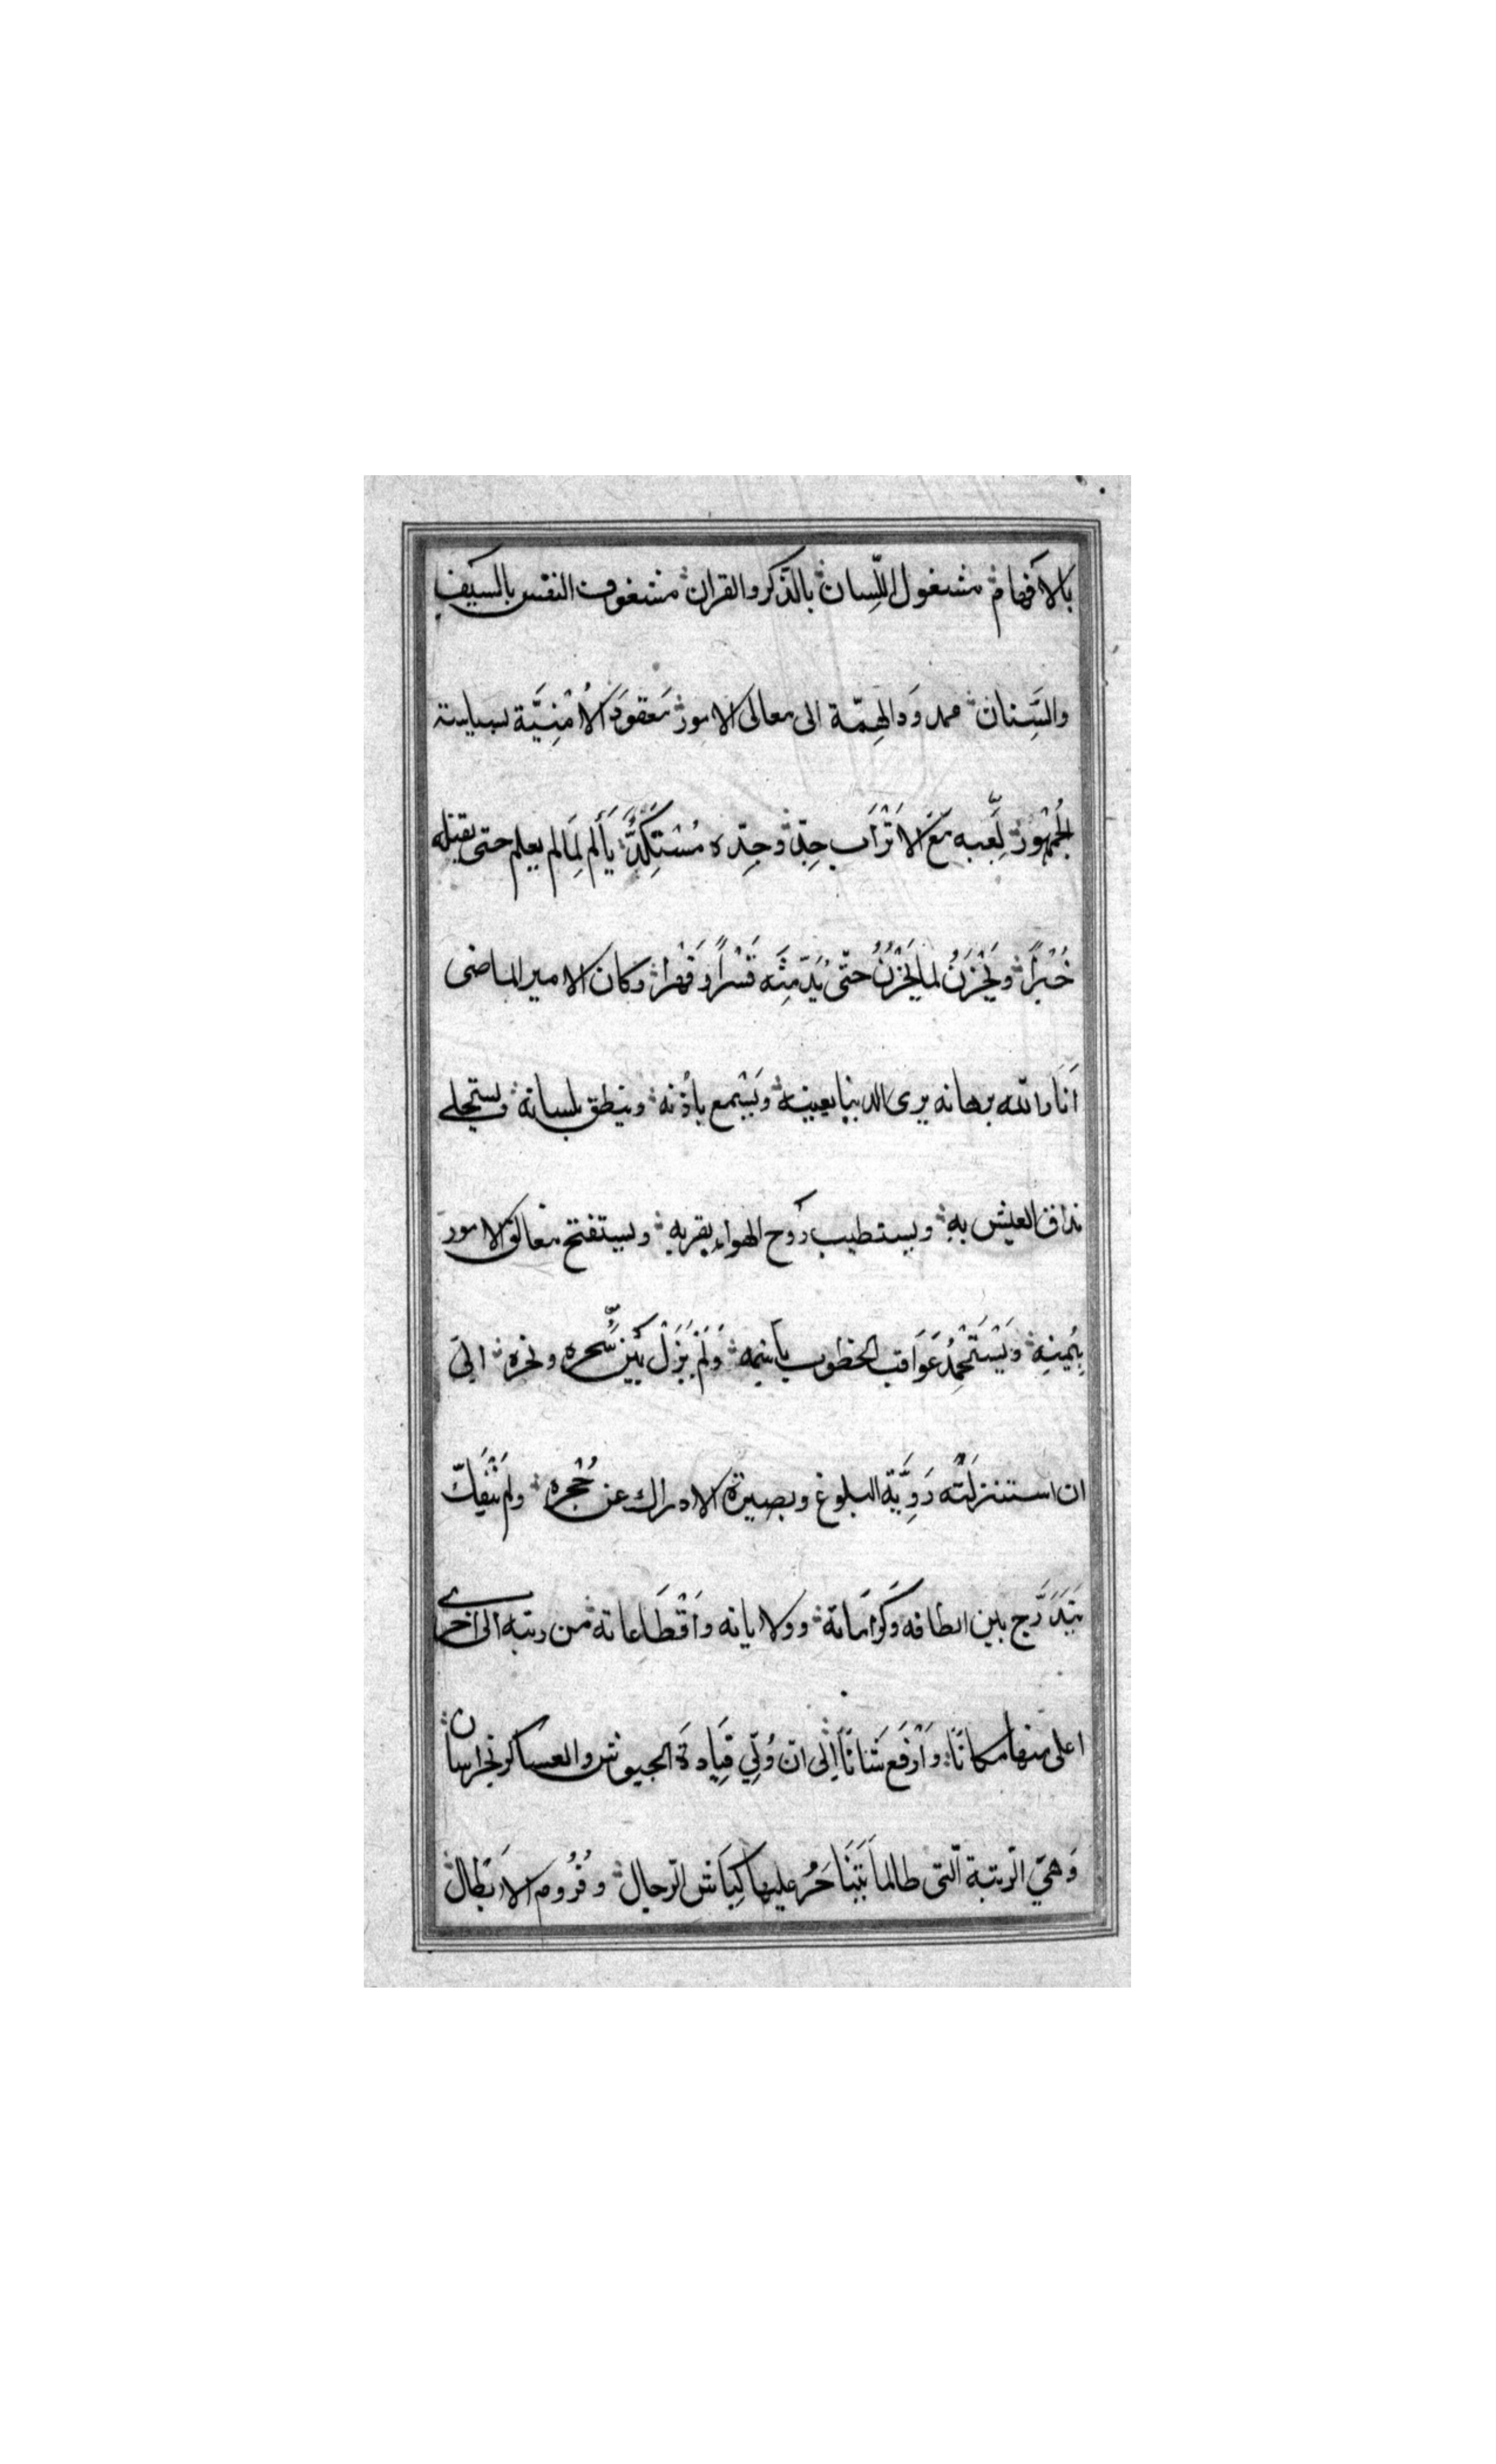 بالافهام مشغول اللّسان بالذّكر والقران مشغوف النفس بالسّيف
والسِّنان ممدود الهمّة الى معالى الامور مَعقودَ الاُمْنِيَّة بسياسة
الجُمْهُور لَعِبه مَعَ الاَتْرَاب جِدّ وجِدّه مُسْتَكَدٌّ يَألم لِمَا لم يعلم حتى يقتله
خُبْراً ويَحْزَنُ لما يَحْزُنُ حتّى يُدَمِّثَه قَسْراً وَقَهْراً وكان الامير الماضى
اَنَارَ الله برهانه يرى الدنيا بعينه وَيَسْمع باُذنه وينطق بلسانه ويستحلى
مذاق العيش بهِ ويستطيب رَوح الهواء بقربهِ ويستفتح مغالق الامور
بِيُمنِه وَيَسْتَحْمِدُ عَوَاقب الخطوب باسْمِه وَلَمْ يَزَلْ بَيْن سَحره ونحره الى
ان استنزلَتْه رَوِيَّة البلوغ وبصيرة الادراك عن حُجْره ولم يَنْفَكّ
يَتَدَرَّج بين الطافه وَكَرَامَاته وولاياته واَقْطَاعاته من رتبة الى اخرى
اعلى منها مكانًا وَاَرْفَع شَانًا اِلى ان وُلِّي قِيَادَة الجيوش والعساكر بخراسان
وَهيَ الرّتبة الّتى طالما يَتَنَاحَرُ عليها كِبَاش الرّجال وقُرُوم الاَبطال